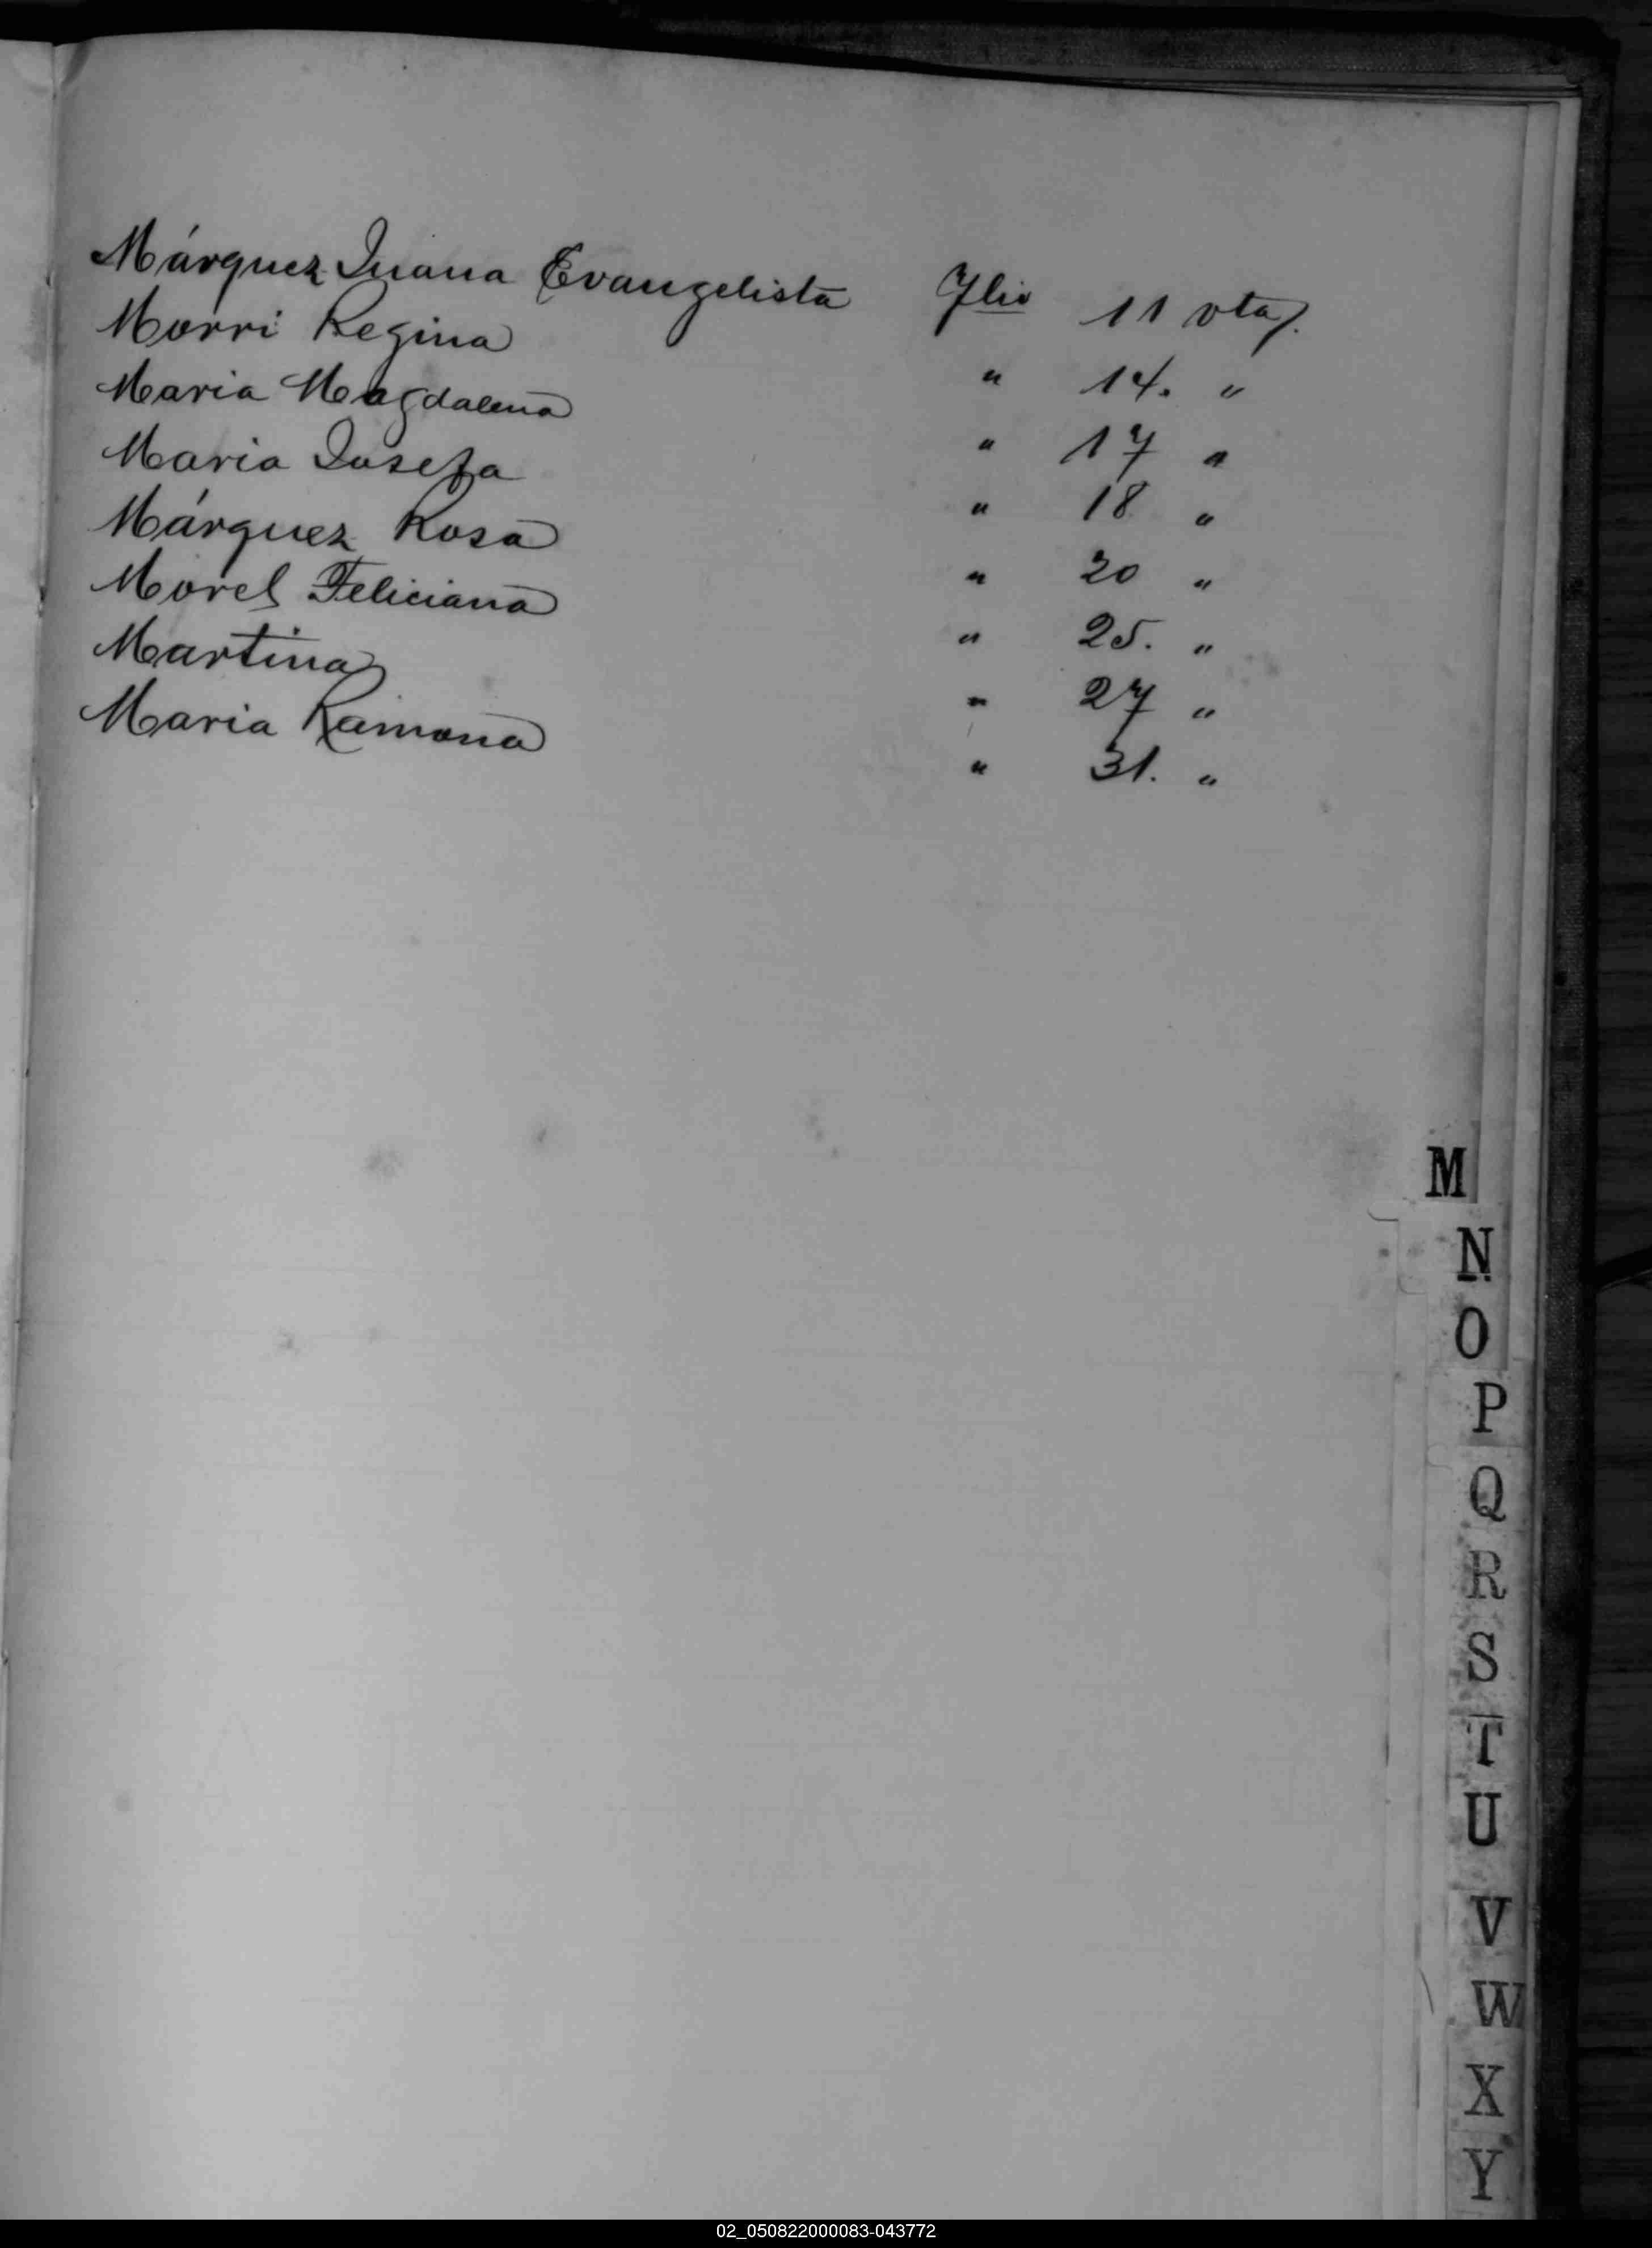 Márquez Juana Evangelista Flio 11 vta.
Morri Regina " 14. "
Maria Magdalena " 17 "
Maria Josefa " 18 "
Márquez Rosa " 20 "
Morel Feliciana " 25. "
Martina " 27 "
Maria Ramona " 31. "
M
N
O
P
Q
R
S
T
U
V
W
X
Y
02_050822000083-043772